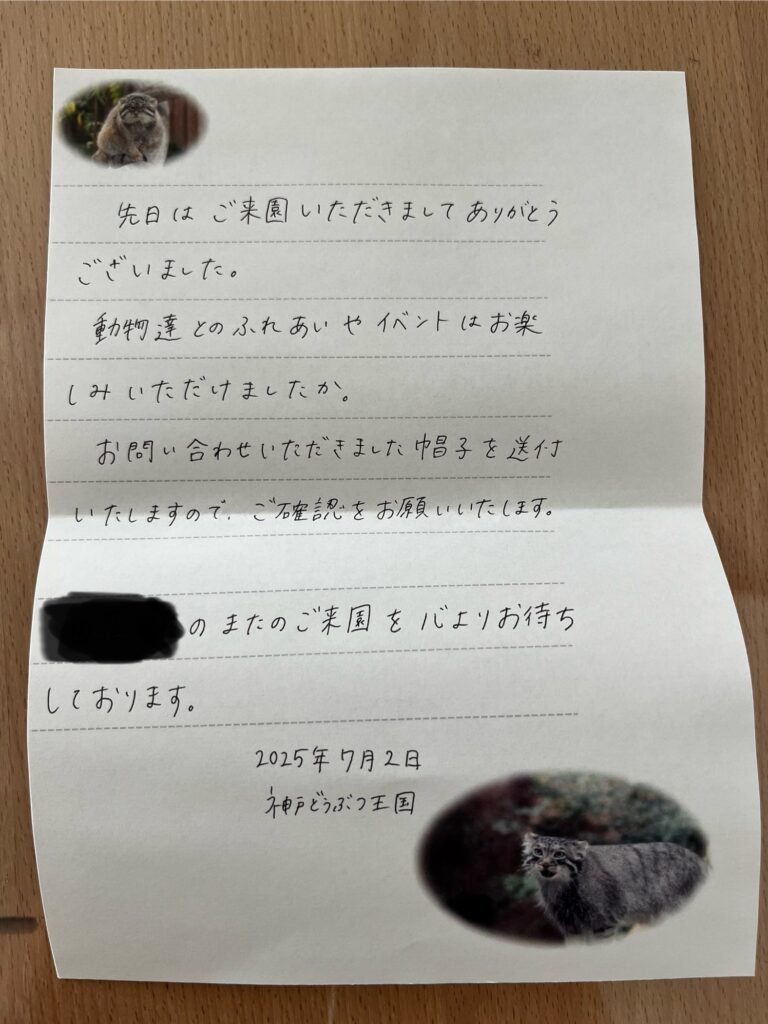 先日は ご来園 いただきまして ありがとう
ございました。
動物達 との ふれあい や イベント は お楽
しみ いただけましたか。
お問い合わせいただきました 帽子 を 送付
いたしますので、ご確認を お願いいたします。
の またの ご来園 を 心より お待ち
しております。
2025年7月2日
神戸どうぶつ王国